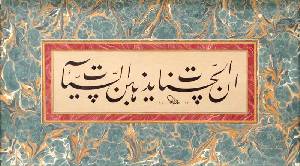 ان الحسنات یذهبن السیئات